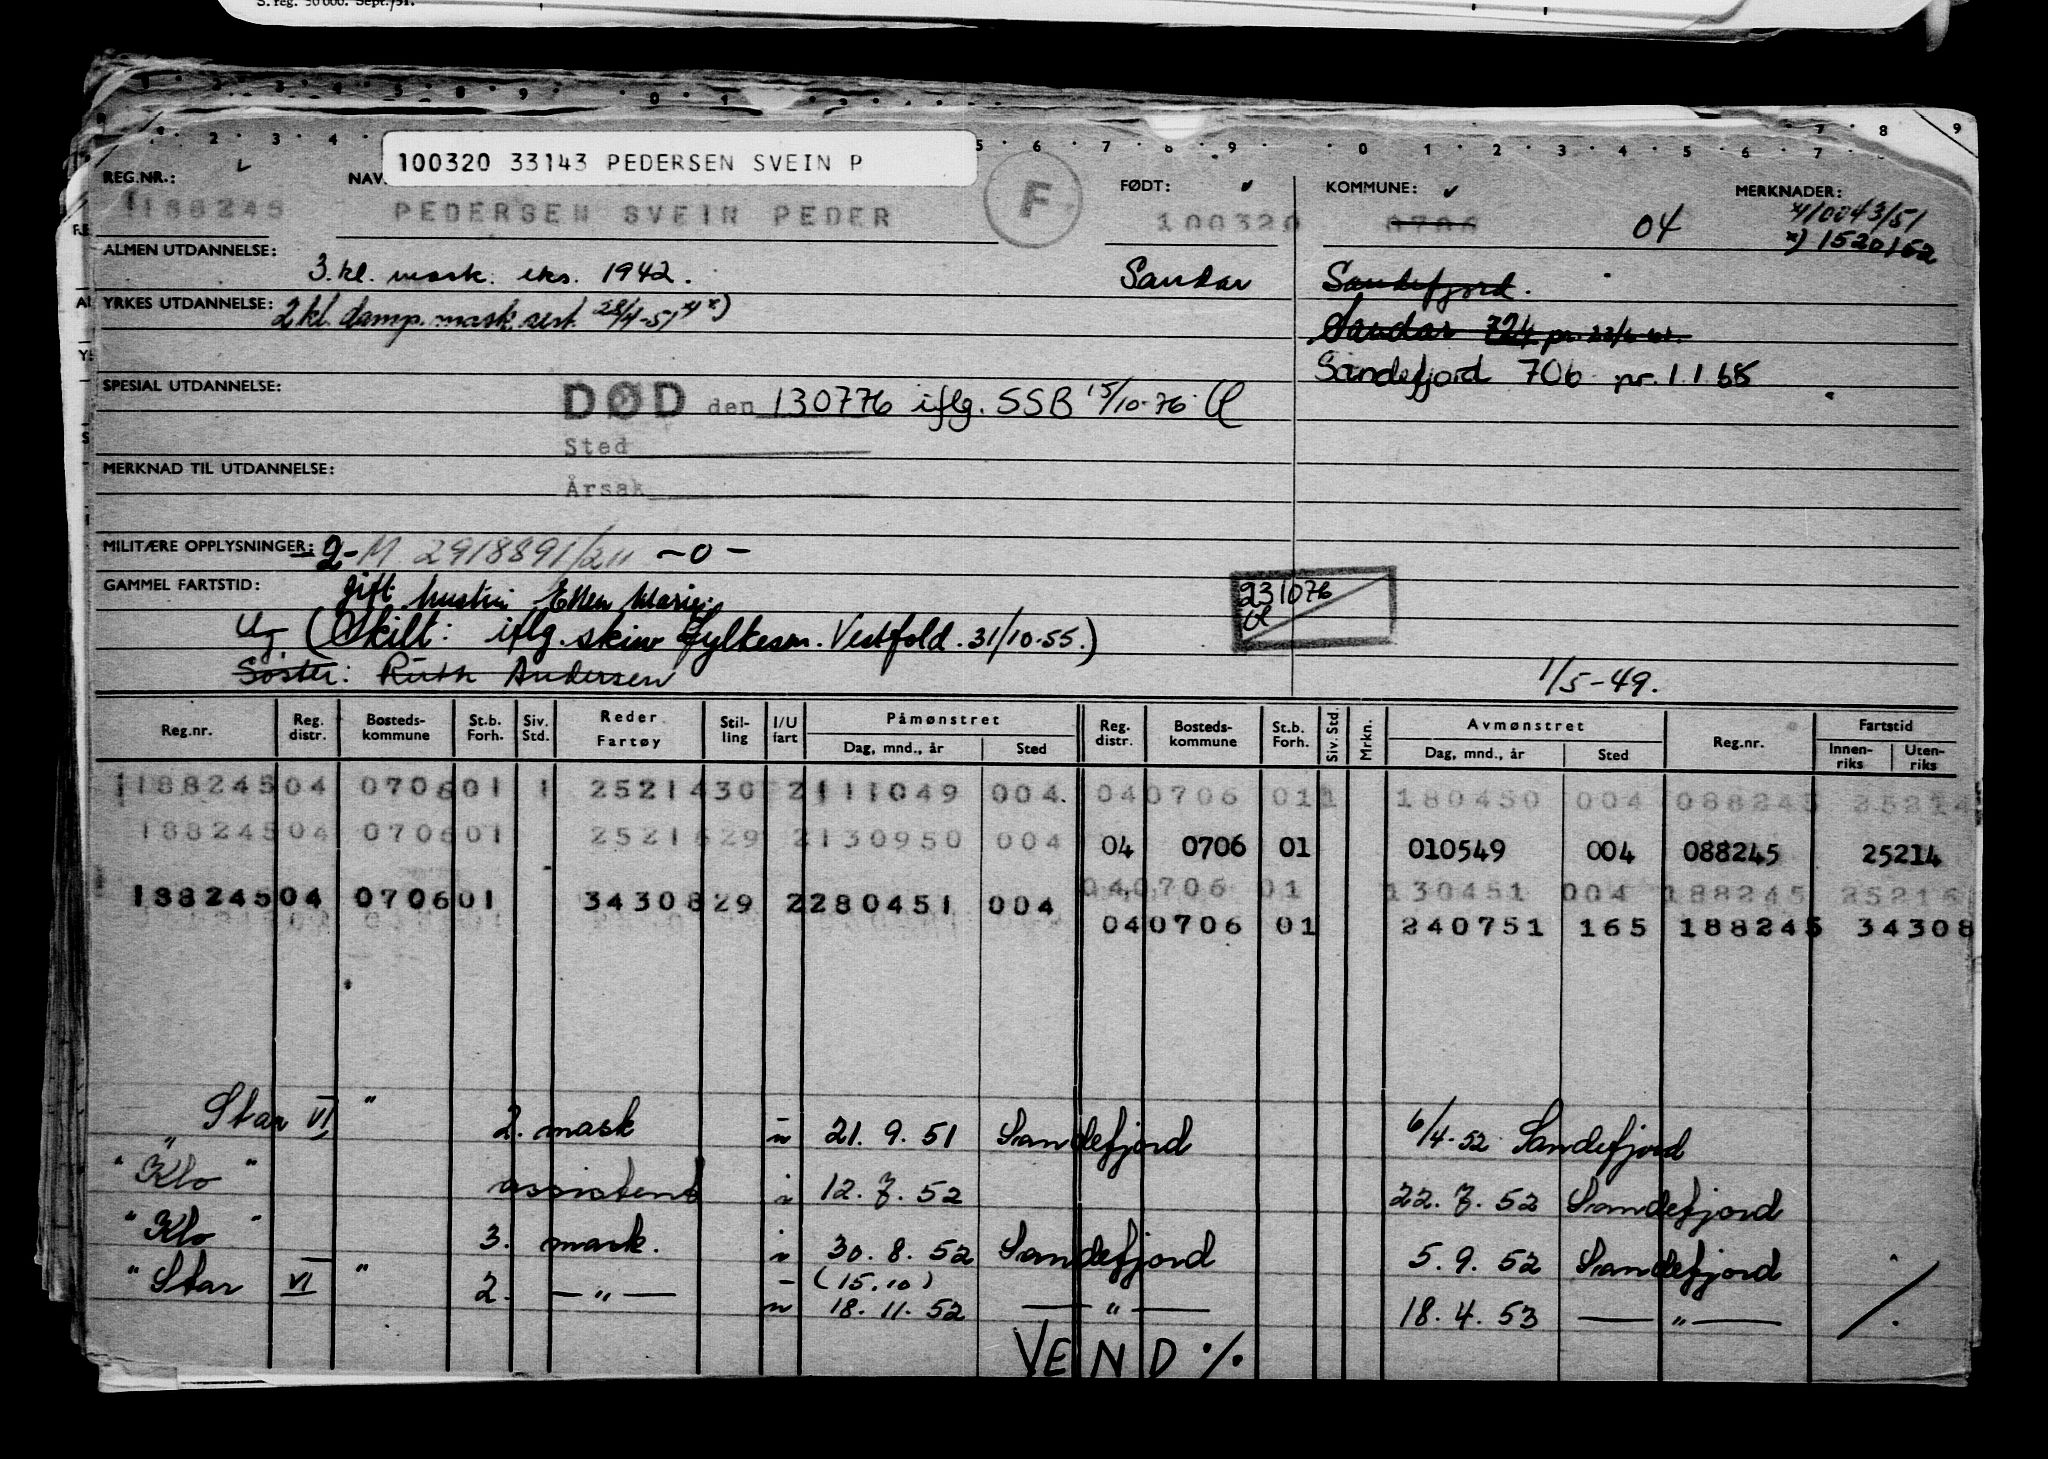 S. reg. 50 000. Sept. /51.
100320 33143 PEDERSEN SVEIN P
REG.NR.: NAV FØDT: KOMMUNE: MERKNADER:
1188245 PEDERSEN SVEIN PEDER F 100320 0706 04 x/0043/51
x) 1520/52
ALMEN UTDANNELSE: 3. kl. mask. eks. 1942. Sandar Sandefjord.
YRKES UTDANNELSE: 2 kl. damp. mask. sert. 28/4-51 Sandar 724
Sandefjord 706 pr. 1.1.68
SPESIAL UTDANNELSE: DØD den 130776 iflg. SSB 15/10-76
Sted
MERKNAD TIL UTDANNELSE:
Årsak
MILITÆRE OPPLYSNINGER: M 2918891/211 -0-
GAMMEL FARTSTID: gift hustru Ellen Marie 231076
Ug. (Skilt: iflg. skiv Fylkesm. Vestfold. 31/10-55.)
Søster: Ruth Andersen 1/5-49.
Reg.nr. Reg. distr. Bosteds-kommune St.b. Forh. Siv. Std. Reder Fartøy Stil-ling I/U fart Påmønstret Dag, mnd., år Sted Reg. distr. Bosteds-kommune St.b. Forh. Siv. Std. Mrkn. Avmønstret Dag, mnd., år Sted Reg.nr. Fartstid Innen-riks Uten-riks
1188245 04 0706 01 1 25214 30 2 111049 004 04 0706 01 1 180450 004 088245 25214
188245 04 0706 01 25216 29 2 130950 004
04 0706 01 010549 004 088245 25214
04 0706 01 130451 004 188245 25216
188245 04 0706 01 34308 29 2 280451 004
04 0706 01 240751 165 188245 34308
Star VI " 2. mask u 21. 9. 51 Sandefjord 6/4-52 Sandefjord
" Klo " assistent 12. 7. 52 22. 7. 52 Sandefjord
" Klo " 3. mask. 30. 8. 52 Sandefjord 5. 9. 52 Sandefjord
(15.10)
" Star VI " 2. — " — u 18. 11. 52 — " — 18. 4. 53 — " —
VEND ./.